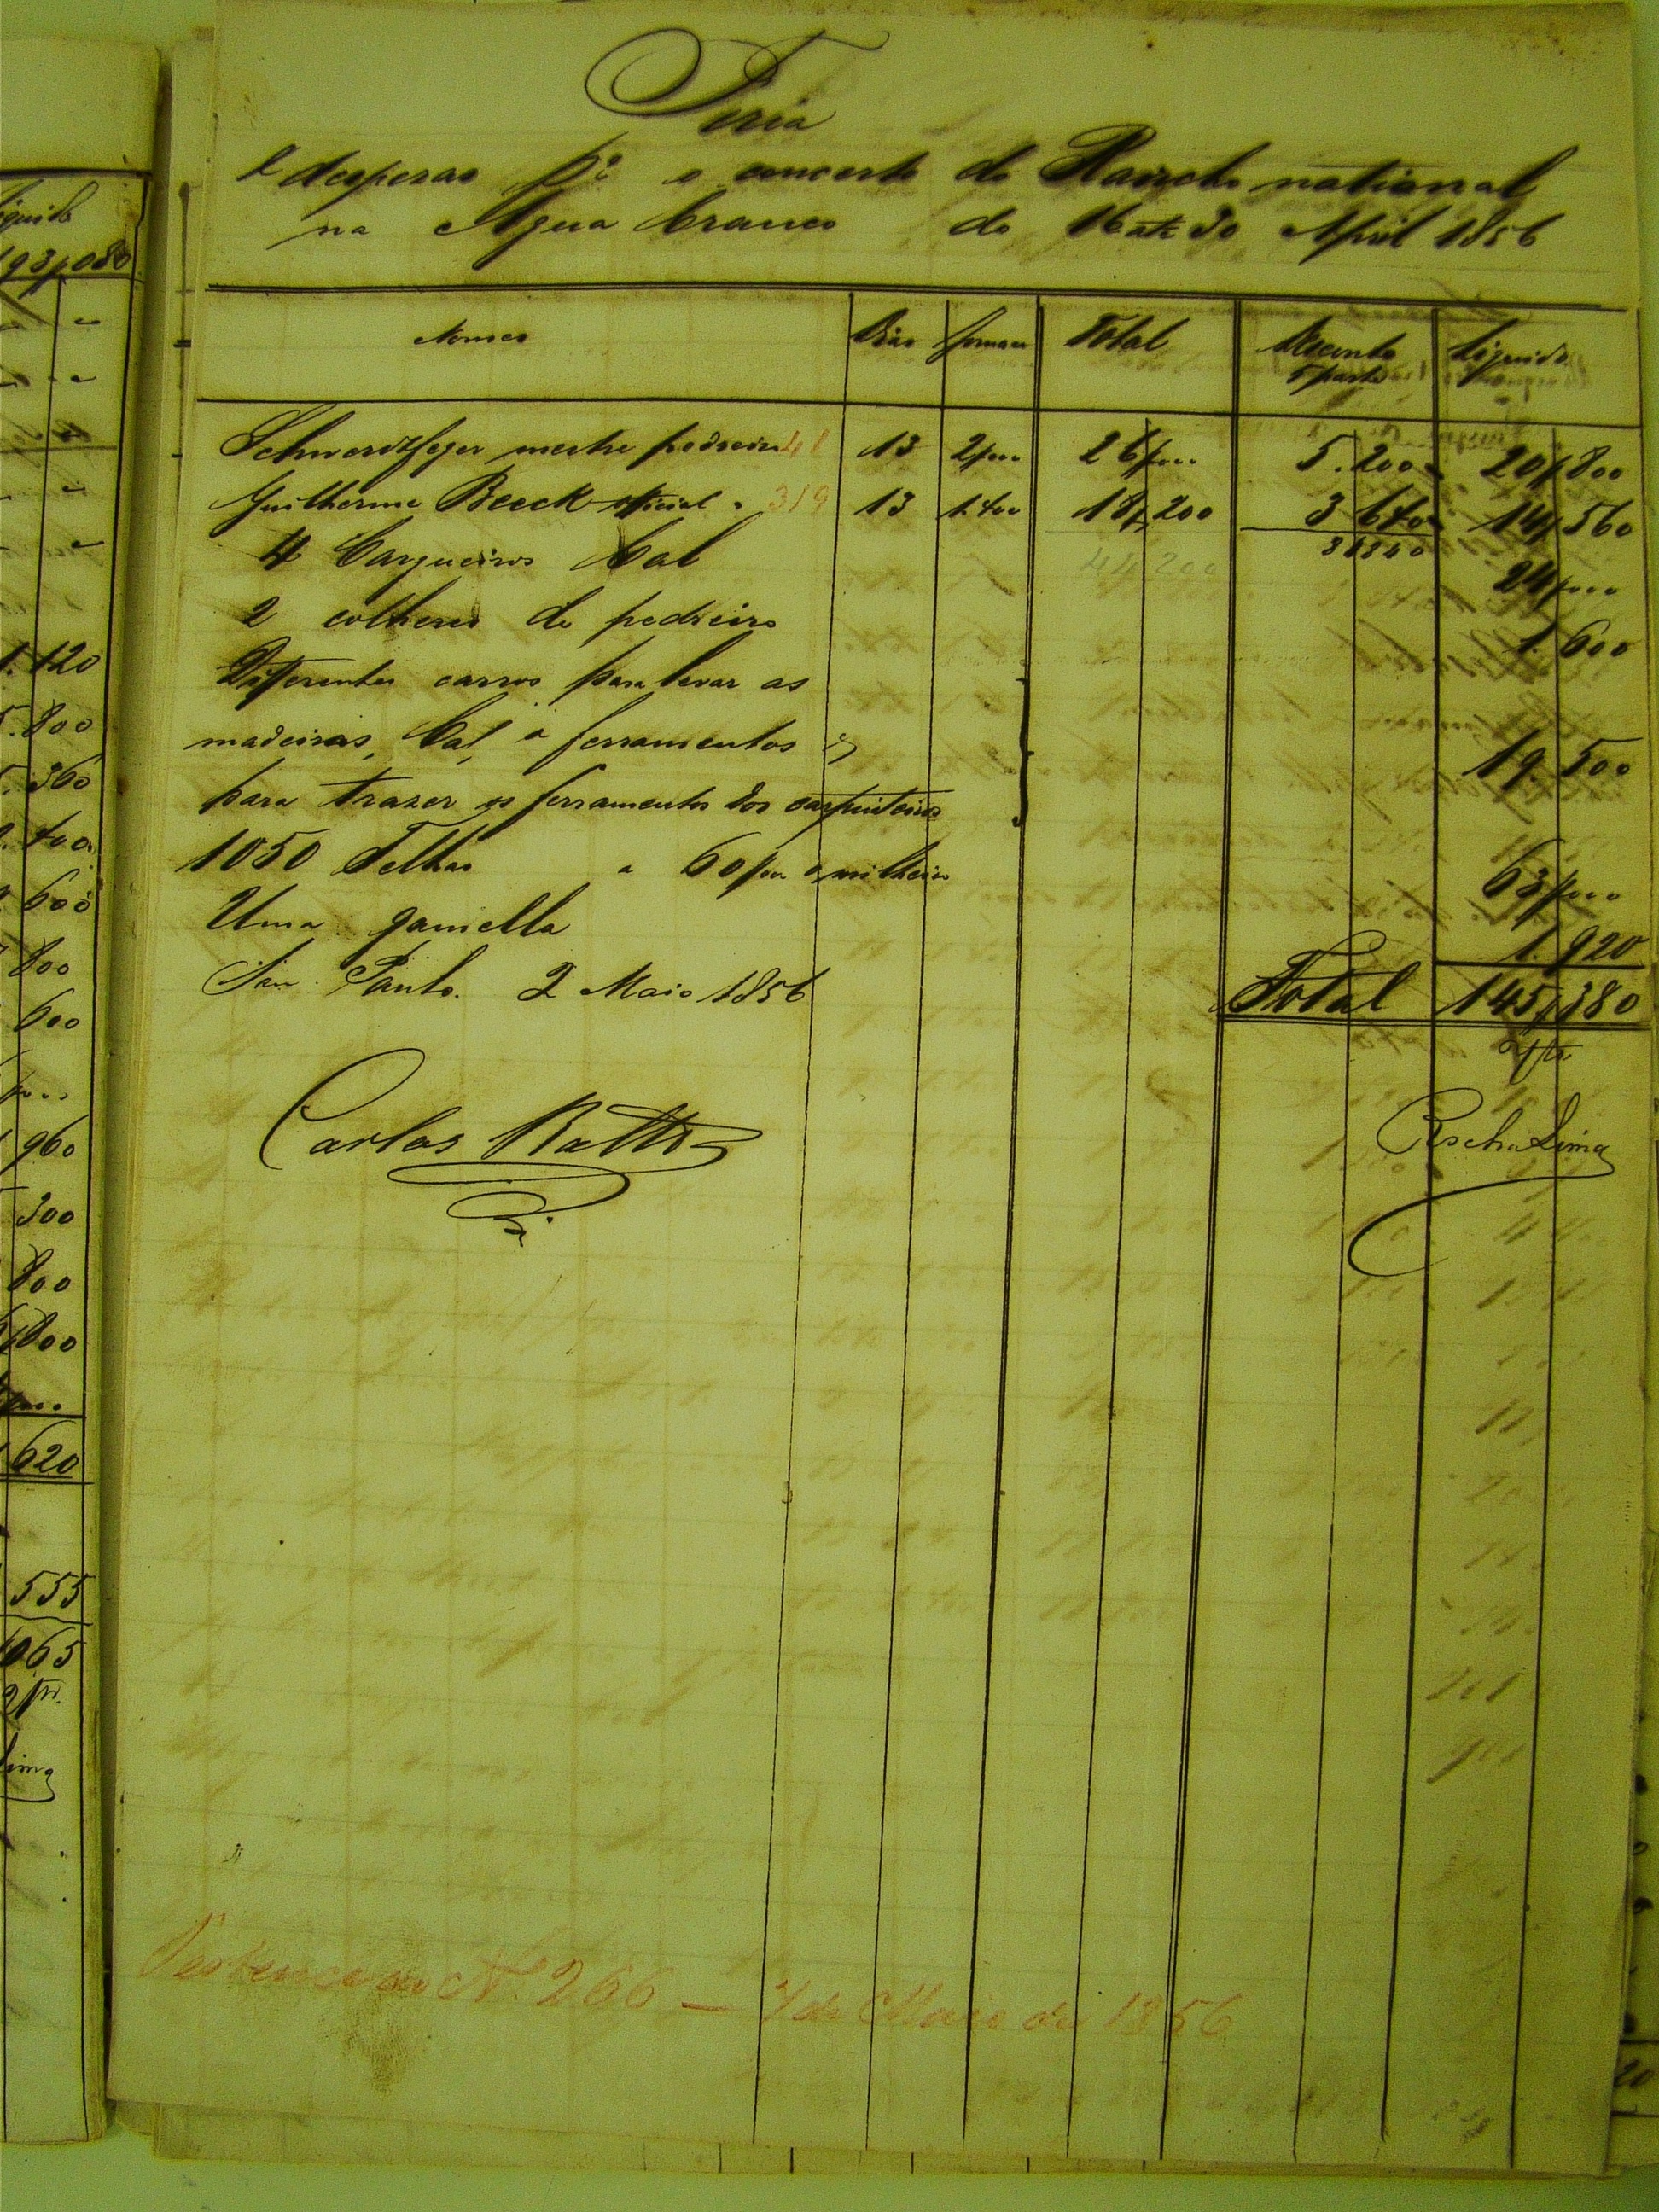 Feria
e despezas pª o concerto do Rancho national
na Agua branca do 16 até 30 April 1856
Nomes Dias Jornaes Total Desconto 5 parte Liquido
Schwerdtfeger mestre pedreiro 48 13 2$000 26$000 5.200 20$800
Guilherme Beeck official " 319 13 1.400 18$200 3 640 14$560
44 200 8$840
4 Cargueiros Cal 24$000
2 colheres de pedreiro 1.600
Differentes carros para levar as
madeiras, Cal, a ferramentos e
para trazer os ferramentos dos carpinteiros 19.500
1050 Telhas a 60$000 o milheiro 63$000
Uma gamella 1.920
San Paulo. 2 Maio 1856 Total 145$380
Carlos Rath
Rocha Lima
Pertence ao Nº 266 — 7 de Maio de 1856
iquido
193$080
1.120
5.800
.360
.400
600
800
600
960
300
800
$800
620
555
065
Lima